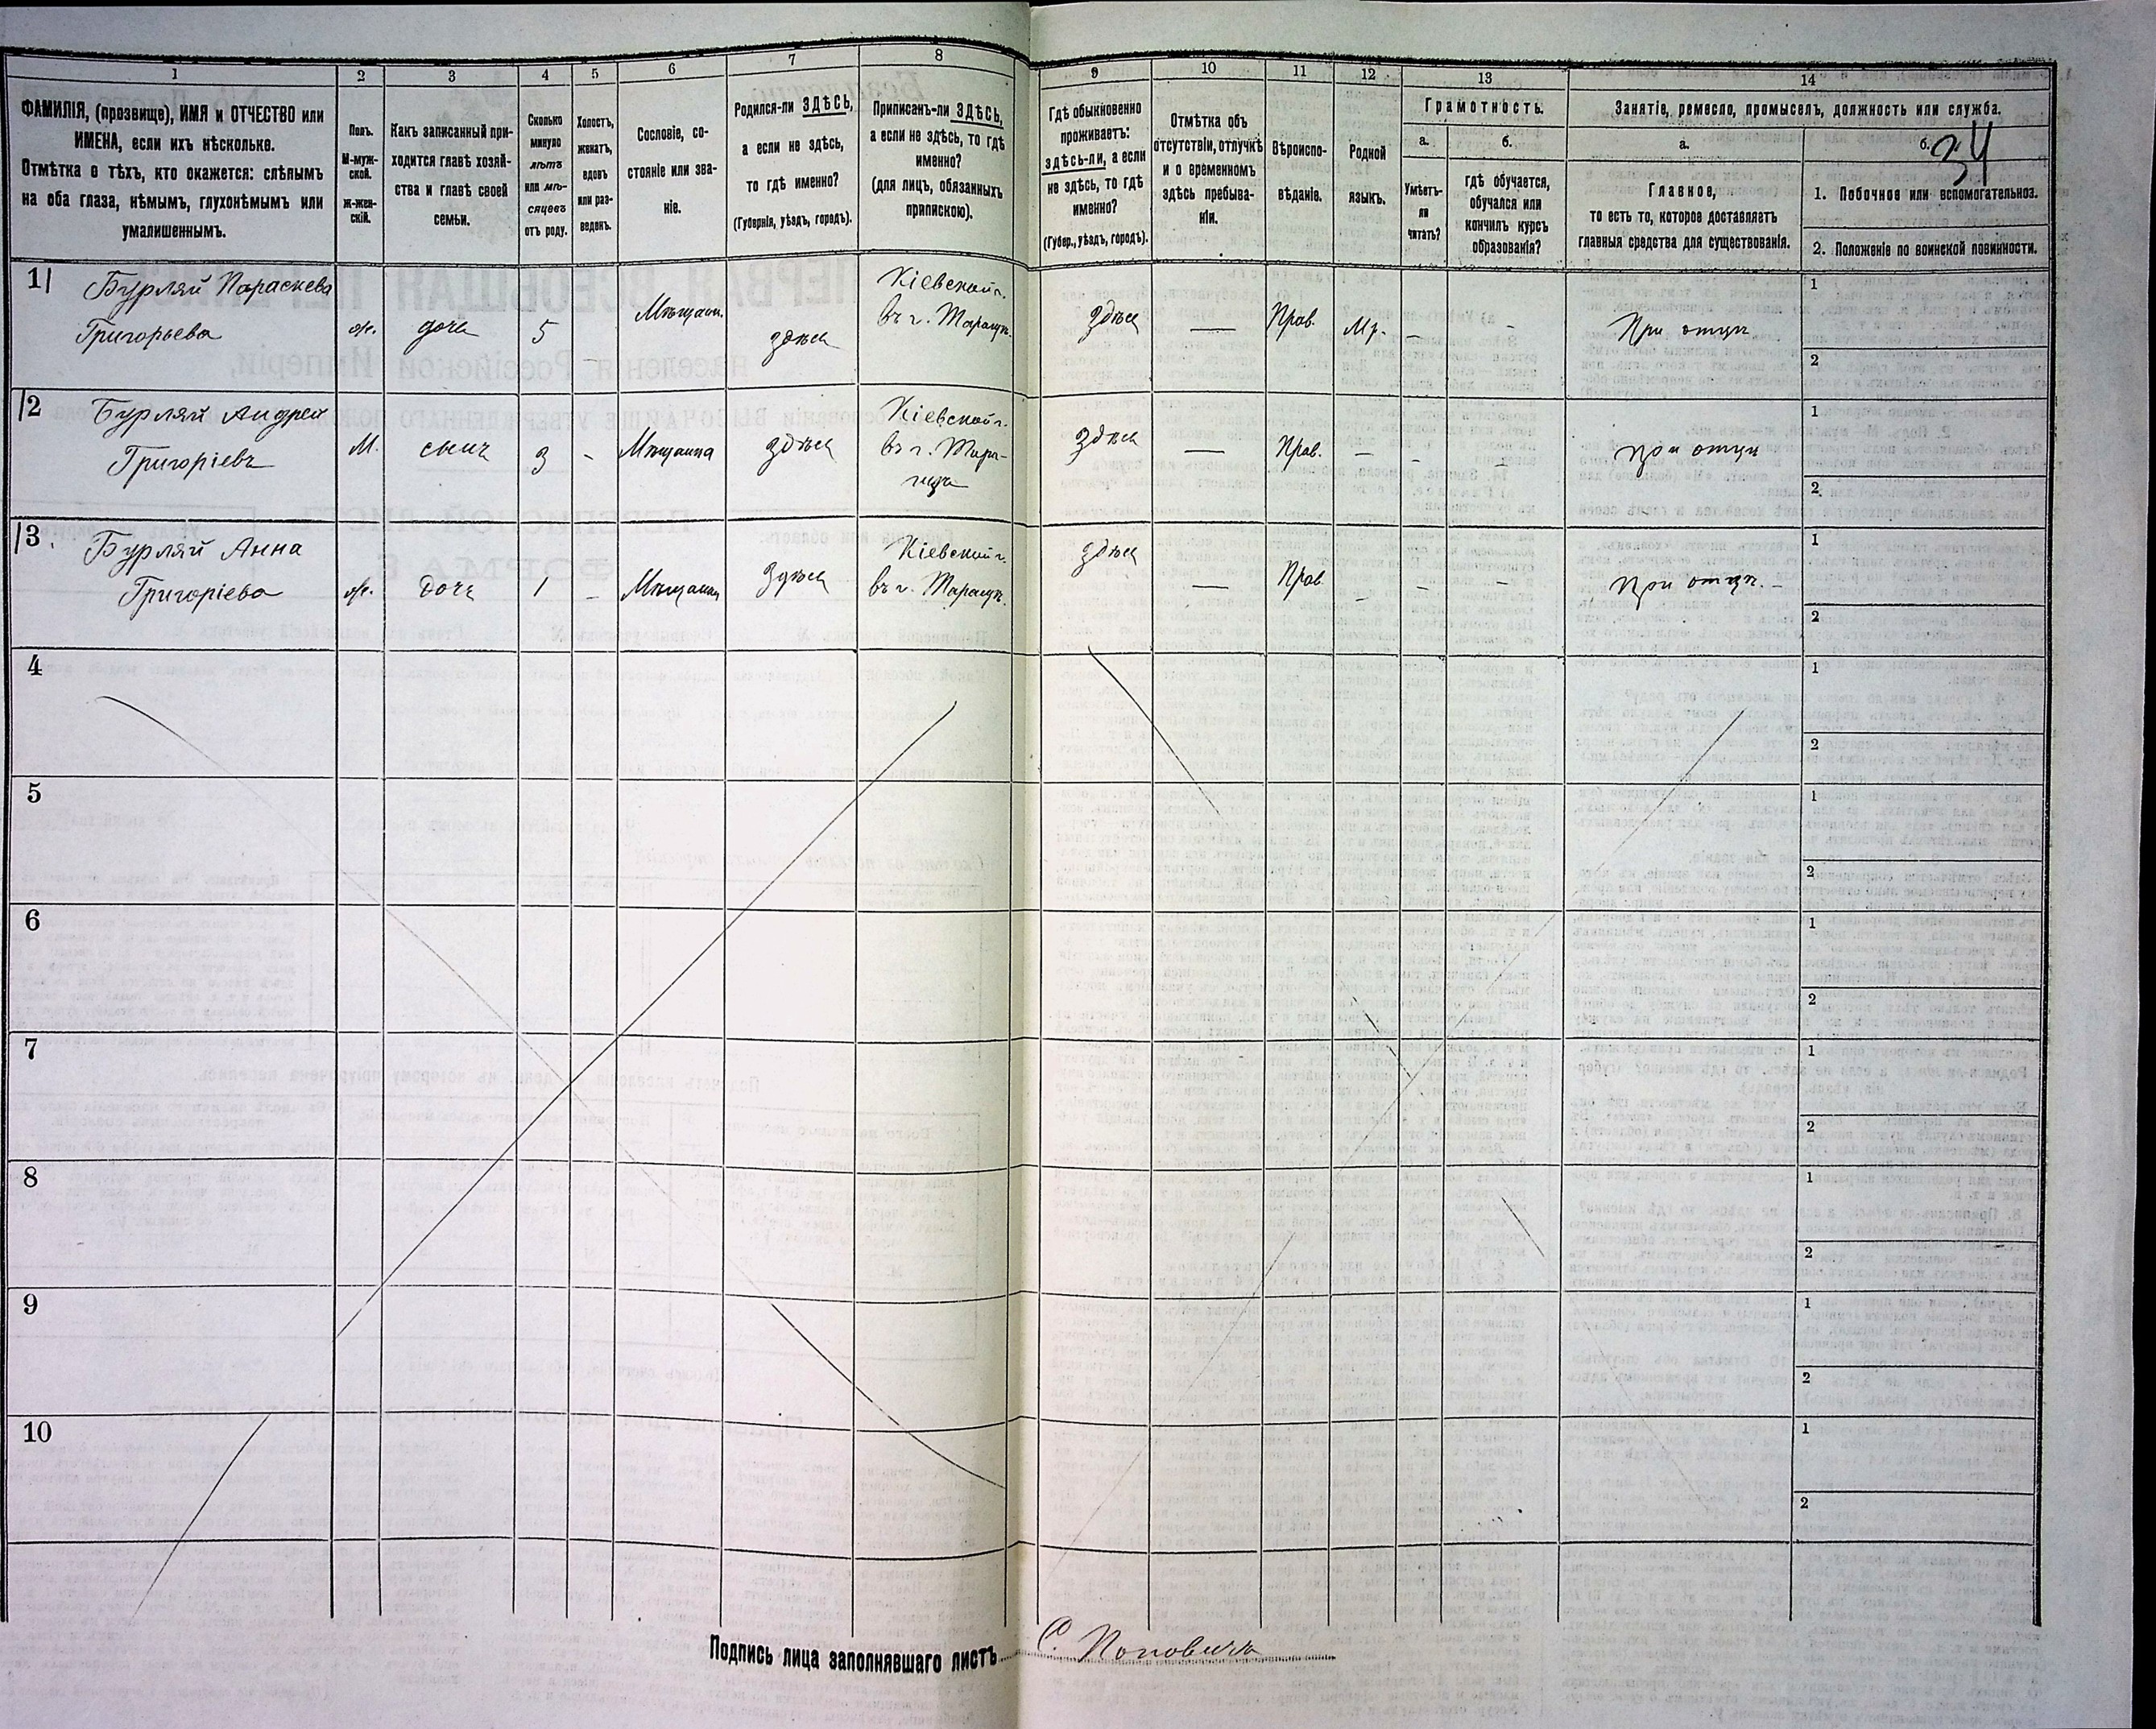 1 2 3 4 5 6 7 8 9 10 11 12 13 14
ФАМИЛІЯ, (прозвище), ИМЯ и ОТЧЕСТВО или
ИМЕНА, если ихъ нѣсколько.
Отмѣтка о тѣхъ, кто окажется: слѣпымъ
на оба глаза, нѣмымъ, глухонѣмымъ или
умалишеннымъ.
Полъ.
М-муж-
ской.
Ж-жен-
скій.
Какъ записанный при-
ходится главѣ хозяй-
ства и главѣ своей
семьи.
Сколько
минуло
лѣтъ
или мѣ-
сяцевъ
отъ роду.
Холостъ,
женатъ,
вдовъ
или раз-
веденъ.
Сословіе, со-
стояніе или зва-
ніе.
Родился-ли ЗДѢСЬ,
а если не здѣсь,
то гдѣ именно?
(Губернія, уѣздъ, городъ).
Приписанъ-ли ЗДѢСЬ,
а если не здѣсь, то гдѣ
именно?
(для лицъ, обязанныхъ
припискою).
Гдѣ обыкновенно
проживаетъ:
здѣсь-ли, а если
не здѣсь, то гдѣ
именно?
(Губер., уѣздъ, городъ).
Отмѣтка объ
отсутствіи, отлучкѣ
и о временномъ
здѣсь пребыва-
ніи.
Вѣроиспо-
вѣданіе.
Родной
языкъ.
Грамотность.
а.
Умѣетъ-
ли
читать?
б.
гдѣ обучается,
обучался или
кончилъ курсъ
образованія?
Занятіе, ремесло, промыселъ, должность или служба.
а.
Главное,
то есть то, которое доставляетъ
главныя средства для существованія.
б.
34
1. Побочное или вспомогательное.
2. Положеніе по воинской повинности.
1 Бурляй Параскева
Григорьева
ж. дочь 5 Мѣщан. здѣсь
Кіевской г.
въ г. Таращ.
здѣсь — Прав. Мр. – – При отцѣ
1
2
2 Бурляй Андрей
Григоріевъ
М. сынъ 3 - Мѣщанин здѣсь
Кіевской г.
въ г. Тара-
щи
здѣсь — Прав. – – – при отцѣ
1
2
3 Бурляй Анна
Григоріева
ж. дочь 1 - Мѣщанин здѣсь
Кіевской г.
въ г. Таращ.
здѣсь — Прав – – – При отцѣ. -
1
2
4
1
2
5
1
2
6
1
2
7
1
2
8
1
2
9
1
2
10
1
2
Подпись лица заполнявшаго листъ С. Поповичъ